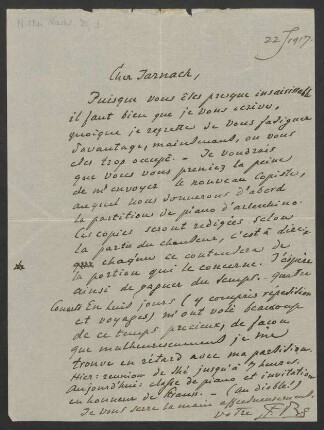 22 1917.
Cher Jarnach,
Puisque vous êtes presque insaisissable
il faut bien que je vous écrive,
quoique je regrette de vous fatiguer
davantage, maintenant, où vous
êtes trop occupé. – Je voudrais
que vous vous preniez la peine
de m'envoyer le nouveau Copiste,
auquel nous donnerons d'abord
la partition de piano d'arlecchino.
Ces copies seront redigées selon
la partie du chanteur, c'est à dire:
chacune ne contiendra
la portion qui le concerne. J'espère
ainsi de gagner du temps. – quatre
Concerts En huit jours (y compris répétition
et voyages) m'ont volé beaucoup
de ce temps precieux, de façon
que malheureusement je me
trouve en retard avec ma partition.
Hier: reunion de thé jusqu'à 7 heures.
Aujourd'hui classe de piano et invitation
en honneur de Strauss. – (Au diable!)
Je vous serre la main affectueusement.
Votre